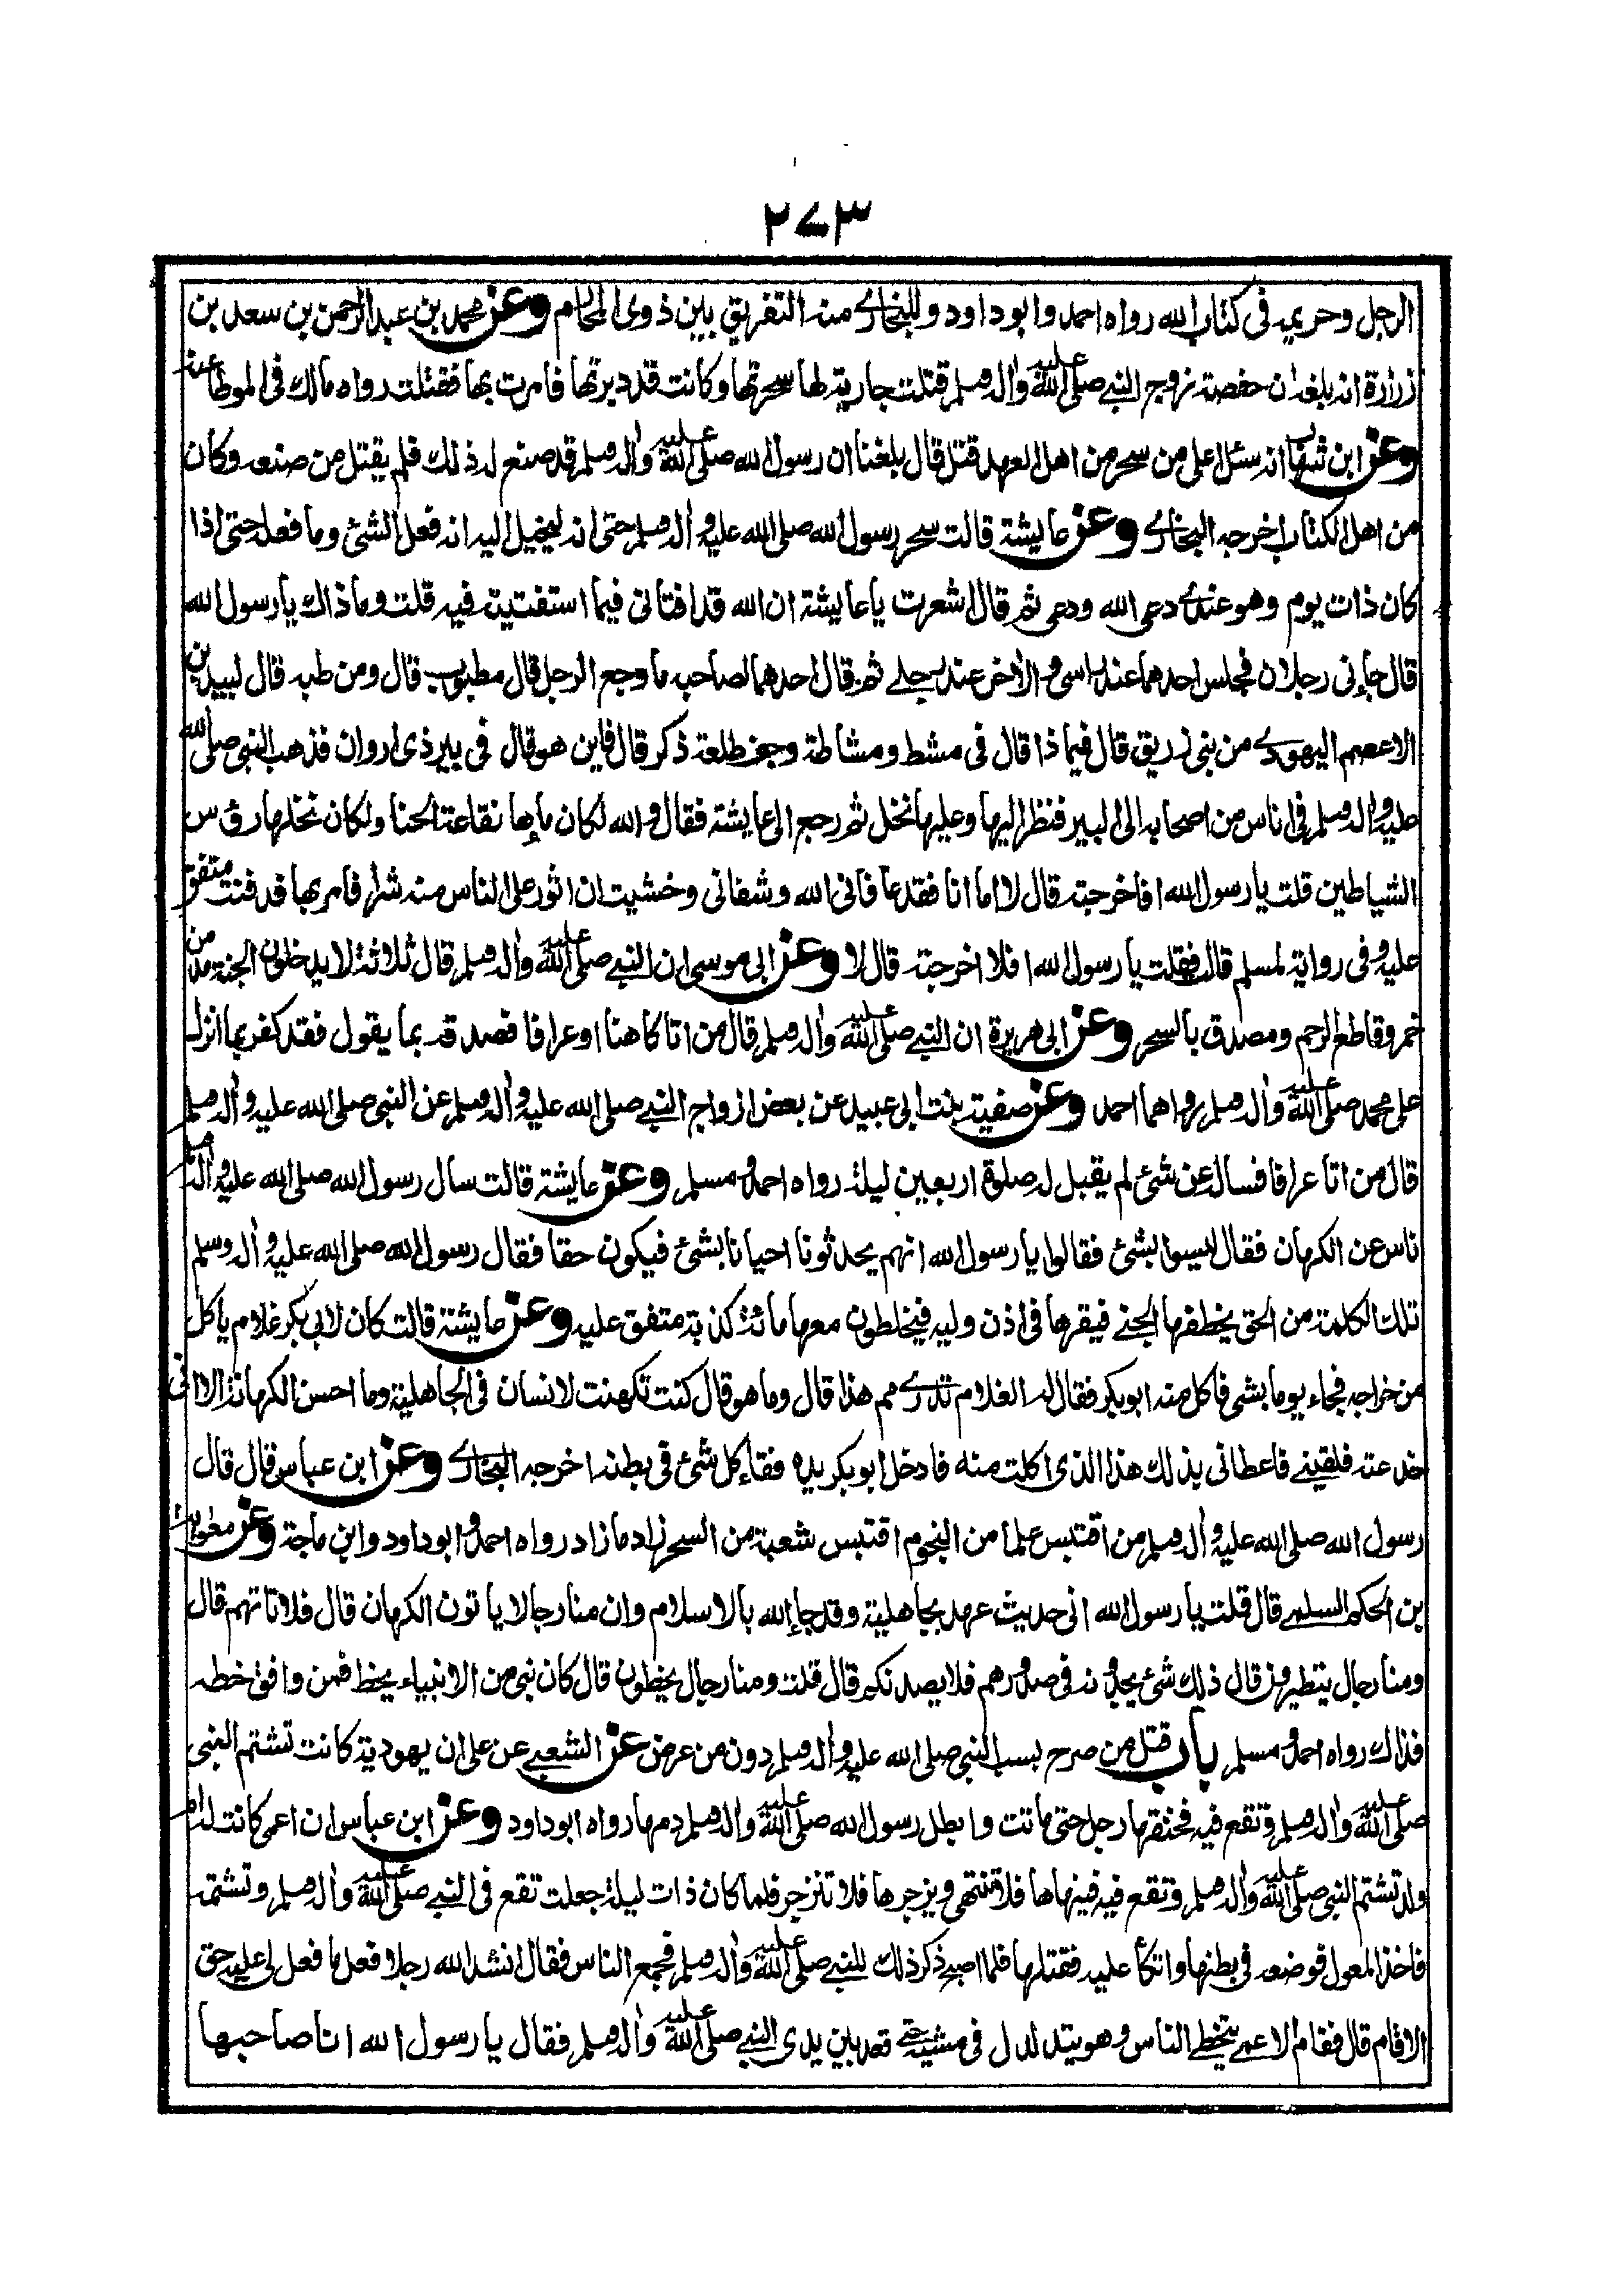 ٢٧٣
الرجل وحريمه فى كتاب الله رواه احمد وابو داود وللبخارى منه التفريق بين ذوى المحارم وعن محمد بن عبد الرحمن بن سعد بن
زرارة انه بلغه ان حفصة زوج النبى صلى الله عليه واله وسلم قتلت جارية لها سحرتها وكانت قد دبرتها فامرت بها فقتلت رواه مالك فى الموطا عنه
وعن ابن شهاب انه سئل اعلى من سحر من اهل العهد قتل قال بلغنا ان رسول الله صلى الله عليه واله وسلم قد صنع له ذلك فلم يقتل من صنعه وكان
من اهل الكتاب اخرجه البخارى وعن عايشة قالت سحر رسول الله صلى الله عليه واله وسلم حتى انه ليخيل اليه انه فعل الشئ وما فعله حتى اذا
كان ذات يوم وهو عندى دعى الله ودعى ثم قال اشعرت يا عايشة ان الله قد افتانى فيما استفتيته فيه قلت وما ذاك يا رسول الله
قال جاءنى رجلان فجلس احدهما عند راسى والاخر عند رجلے ثم قال احدهما لصاحبه ما وجع الرجل قال مطبوب قال ومن طبه قال لبيد بن
الاعصم اليهودے من بنى زريق قال فيما ذا قال فى مشط ومشاطة وجف طلعة ذكر قال فاين هو قال فى بير ذى اروان فذهب النبى صلى الله
عليه واله وسلم فى اناس من اصحابه الى البير فنظر اليها وعليها نخل ثم رجع الى عايشة فقال والله لكان ماءها نقاعة الحنا ولكان نخلها رؤس
الشياطين قلت يا رسول الله افاخرجته قال لا اما انا فقد عافانى الله وشفانى وخشيت ان اثور على الناس منه شرا فامر بها فدفنت متفق
عليه وفى رواية لمسلم قالت فقلت يا رسول الله افلا اخرجته قال لا وعن ابى موسى ان النبے صلى الله عليه واله وسلم قال ثلاثة لا يدخلون الجنة مدمن
خمر وقاطع الرحم ومصدق بالسحر وعن ابى هريرة ان النبے صلى الله عليه واله وسلم قال من اتا كاهنا او عرافا فصدقه بما يقول فقد كفر بما انزل
على محمد صلى الله عليه واله وسلم رواهما احمد وعن صفية بنت ابى عبيد عن بعض ازواج النبے صلى الله عليه واله وسلم عن النبى صلى الله عليه واله وسلم
قال من اتا عرافا فساله عن شئ لم يقبل له صلوة اربعين ليلة رواه احمد ومسلم وعن عايشة قالت سال رسول الله صلى الله عليه واله وسلم
ناس عن الكهان فقال ليسوا بشئ فقالوا يا رسول الله انهم يحدثونا احيانا بشئ فيكون حقا فقال رسول الله صلى الله عليه واله وسلم
تلك الكلمة من الحق يخطفها الجنے فيقرها فى اذن وليه فيخلطون معها مائة كذبة متفق عليه وعن عايشة قالت كان لابى بكر غلام ياكل
من خراجه فجاء يوما بشى فاكل منه ابو بكر فقال له الغلام تدرے مم هذا قال وما هو قال كنت تكهنت لانسان فى الجاهلية وما احسن الكهانة الا انى
خدعته فلقينے فاعطانى بذلك هذا الذى اكلت منه فادخل ابو بكر يده فقاء كل شئ فى بطنه اخرجه البخارے وعن ابن عباس قال قال
رسول الله صلى الله عليه واله وسلم من اقتبس علما من النجوم اقتبس شعبة من السحر زاد ما زاد رواه احمد وابو داود وابن ماجة وعن معاوية
بن الحكم السلمے قال قلت يا رسول الله انى حديث عهد بجاهلية وقد جاء الله بالاسلام وان منا رجالا ياتون الكهان قال فلا تاتهم قال
ومنا رجال يتطيرون قال ذلك شئ يجدونه فى صدورهم فلا يصدنكم قال قلت ومنا رجال يخطون قال كان نبى من الانبياء يخط فمن وافق خطه
فذاك رواه احمد ومسلم باب قتل من صرح بسب النبى صلى الله عليه واله وسلم دون من عرض عن الشعبے عن على ان يهودية كانت تشتم النبى
صلى الله عليه واله وسلم وتقع فيه فخنقها رجل حتى ماتت وابطل رسول الله صلى الله عليه واله وسلم دمها رواه ابو داود وعن ابن عباس ان اعمى كانت له ام
ولد تشتم النبى صلى الله عليه واله وسلم وتقع فيه فينهاها فلا تنتهى ويزجرها فلا تنزجر فلما كان ذات ليلة جعلت تقع فى النبے صلى الله عليه واله وسلم وتشتمه
فاخذ المعول فوضعه فى بطنها واتكأ عليه فقتلها فلما اصبح ذكر ذلك للنبے صلى الله عليه واله وسلم فجمع الناس فقال انشد الله رجلا فعل ما فعل لى عليه حق
الا قام قال فقام الاعمے يتخطے الناس وهو يتدلدل فى مشيته حتے قعد بين يدى النبے صلى الله عليه واله وسلم فقال يا رسول الله انا صاحبها